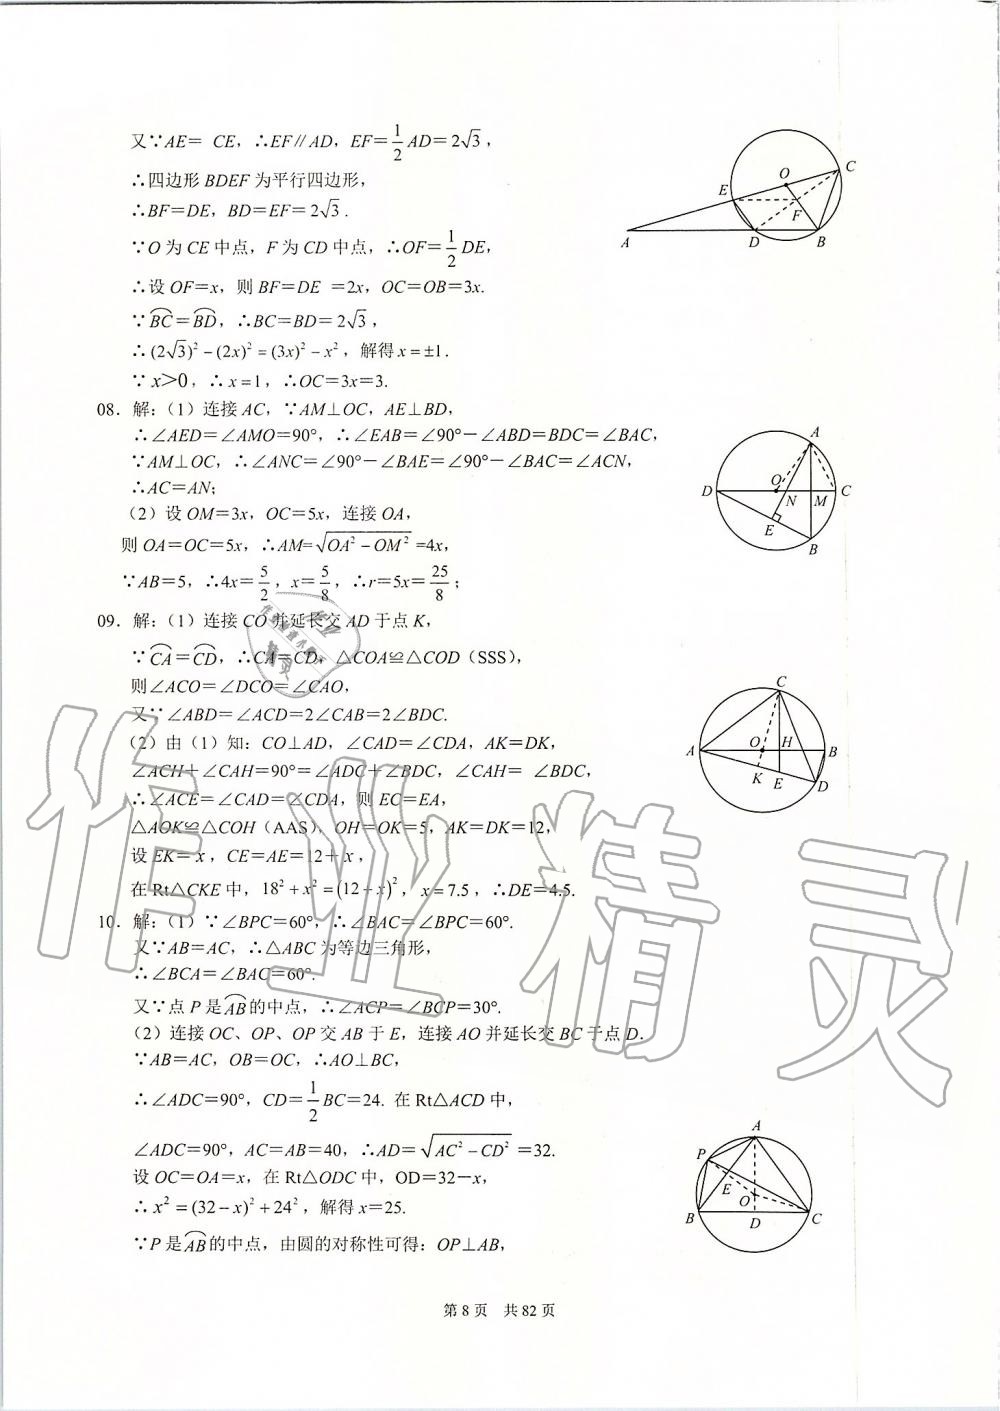 又∵AE= CE，∴EF∥AD，EF=1/2 AD=2√3，
∴四边形 BDEF 为平行四边形，
∴BF=DE，BD=EF=2√3.
∵O 为 CE 中点，F 为 CD 中点，∴OF=1/2 DE，
∴设 OF=x，则 BF=DE =2x，OC=OB=3x.
∵⌒BC=⌒BD，∴BC=BD=2√3，
∴(2√3)²-(2x)²=(3x)²-x²，解得 x=±1.
∵x>0，∴x=1，∴OC=3x=3.
O C E F A D B
08．解：（1）连接 AC，∵AM⊥OC，AE⊥BD，
∴∠AED=∠AMO=90°，∴∠EAB=∠90°-∠ABD=BDC=∠BAC，
∵AM⊥OC，∴∠ANC=∠90°-∠BAE=∠90°-∠BAC=∠ACN，
∴AC=AN；
（2）设 OM=3x，OC=5x，连接 OA，
则 OA=OC=5x，∴AM=√(OA²-OM²)=4x，
∵AB=5，∴4x=5/2，x=5/8，∴r=5x=25/8；
A O D N M C E B
09．解：（1）连接 CO 并延长交 AD 于点 K，
∵⌒CA=⌒CD，∴CA=CD，△COA≌△COD（SSS），
则∠ACO=∠DCO=∠CAO，
又∵∠ABD=∠ACD=2∠CAB=2∠BDC.
（2）由（1）知：CO⊥AD，∠CAD=∠CDA，AK=DK，
∠ACH+∠CAH=90°=∠ADC+∠BDC，∠CAH= ∠BDC，
∴∠ACE=∠CAD=∠CDA，则 EC=EA，
△AOK≌△COH（AAS），OH=OK=5，AK=DK=12，
设 EK=x，CE=AE=12+x，
在 Rt△CKE 中，18²+x²=(12+x)²，x=7.5，∴DE=4.5.
C O H A B K E D
10．解：（1）∵∠BPC=60°，∴∠BAC=∠BPC=60°.
又∵AB=AC，∴△ABC 为等边三角形，
∴∠BCA=∠BAC=60°.
又∵点 P 是⌒AB的中点，∴∠ACP=∠BCP=30°.
（2）连接 OC、OP、OP 交 AB 于 E，连接 AO 并延长交 BC 于点 D.
∵AB=AC，OB=OC，∴AO⊥BC，
∴∠ADC=90°，CD=1/2 BC=24. 在 Rt△ACD 中，
∠ADC=90°，AC=AB=40，∴AD=√(AC²-CD²)=32.
设 OC=OA=x，在 Rt△ODC 中，OD=32-x，
∴x²=(32-x)²+24²，解得 x=25.
∵P 是⌒AB的中点，由圆的对称性可得：OP⊥AB，
A P E O B D C
第 8 页 共 82 页
作业精灵